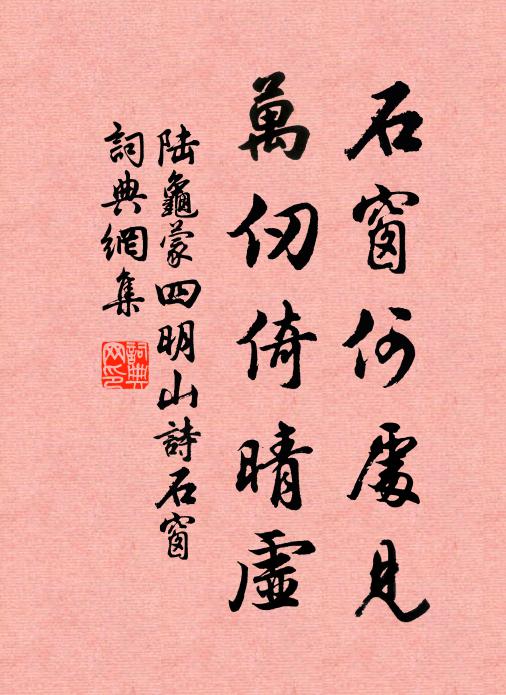 石窗何處見
萬仞倚晴虛
陸龜蒙四明山詩石窗
詞典網集
詞典網印